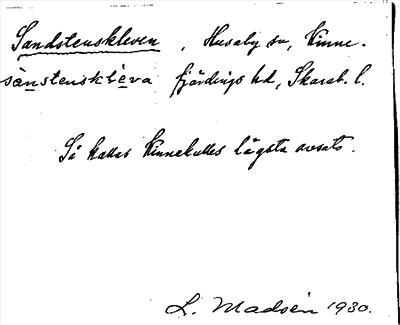 Sandstenskleven, Husaby sn, Kinne-
sanstensklèva fjärdings hd, Skarab. l.
Så kallas Kinnekulles lägsta avsats.
L. Madsén 1930.